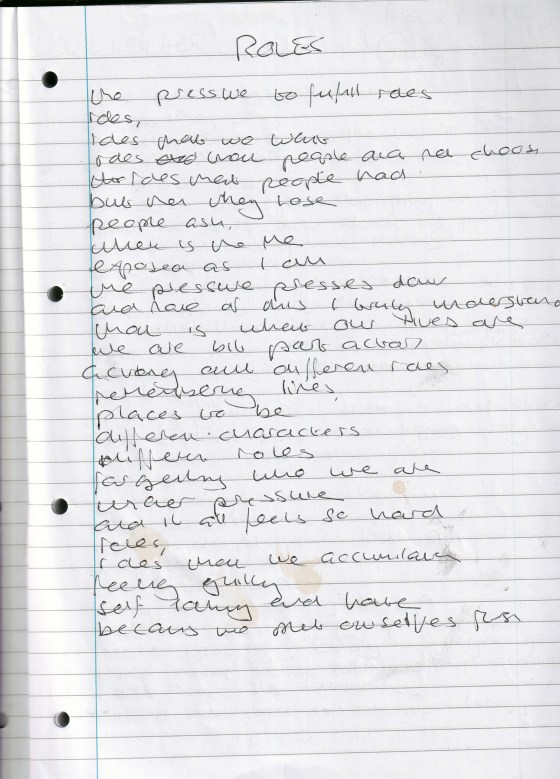 ROLES
the pressure to fulfill roles
roles,
roles that we want
roles that people did not choose
roles that people had
but then they lose
people ask,
where is the me
exposed as I am
the pressure presses down
and none of this I truly understand
that is what our lives are
we are bit part actors
acting out different roles
remembering lines,
places to be
different characters
different roles
forgetting who we are
under pressure
and it all feels so hard
roles,
roles that we accumulate
feeling guilty
self and hate
because we put ourselves first